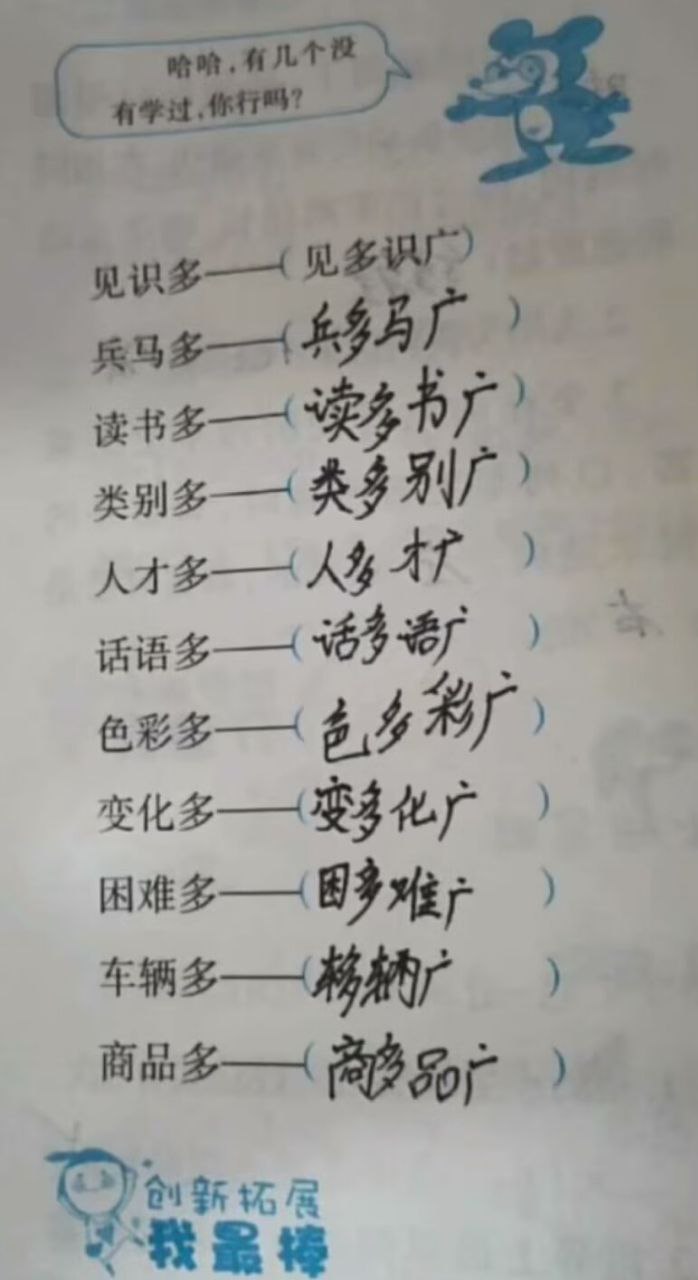 哈哈,有几个没
有学过,你行吗?
见识多——(见多识广)
兵马多——(兵多马广)
读书多——(读多书广)
类别多——(类多别广)
人才多——(人多才广)
话语多——(话多语广)
色彩多——(色多彩广)
变化多——(变多化广)
困难多——(困多难广)
车辆多——(车多辆广)
商品多——(商多品广)
创新拓展
我最棒